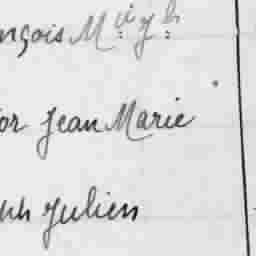 nçois M
or Jean Marie
ph Julien